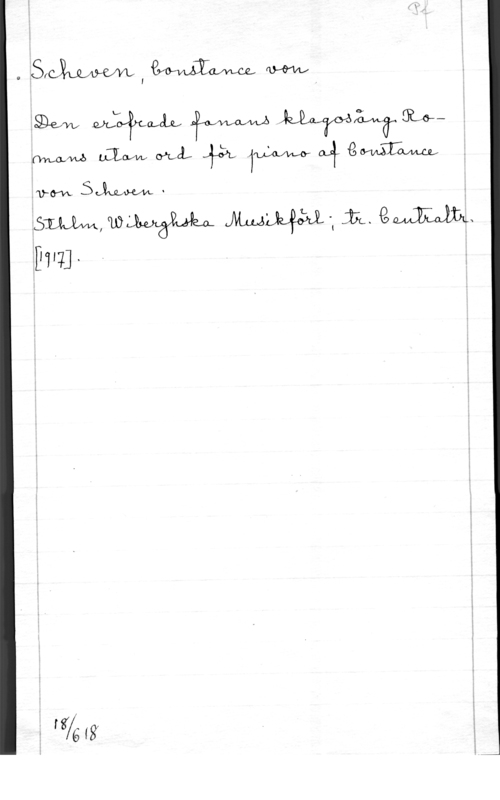 Pf
Scheven, Constance von
Den eröfrade fanans klagosång. Ro-
mans utan ord för piano af Constance
von Scheven.
Sthlm, Wiberghska Musikförl.; tr. Centraltr.
[1917].
18/6 18